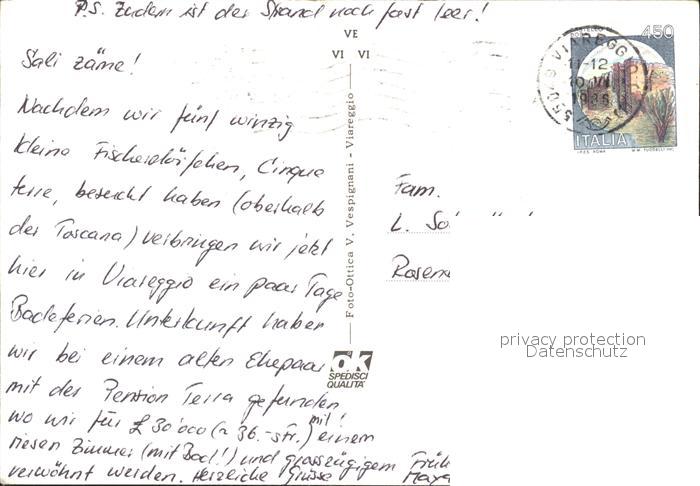 P.S. Zudem ist der Strand noch fast leer!
Sali zäme!
Nachdem wir fünf winzig
kleine Fischerdörfchen, Cinque
terre, besucht haben (oberhalb
der Toscana) verbringen wir jetzt
hier in Viareggio ein paar Tage
Badeferien. Unterkunft haben
wir bei einem alten Ehepaar
mit der Pension Terra gefunden
wo wir für £ 30'000 (~ 36.-sfr.) mit! einem
riesen Zimmer (mit Bad!) und grosszügigem Früh
verwöhnt werden. Herzliche Grüsse Maya
VE
VI VI
Foto-Ottica V. Vespignani - Viareggio
ok
SPEDISCI
QUALITÀ
450
VIAREGGIO
11-12
ITALIA
I.P.Z.S. ROMA
Fam.
L. So
Rosen
privacy protection
Datenschutz